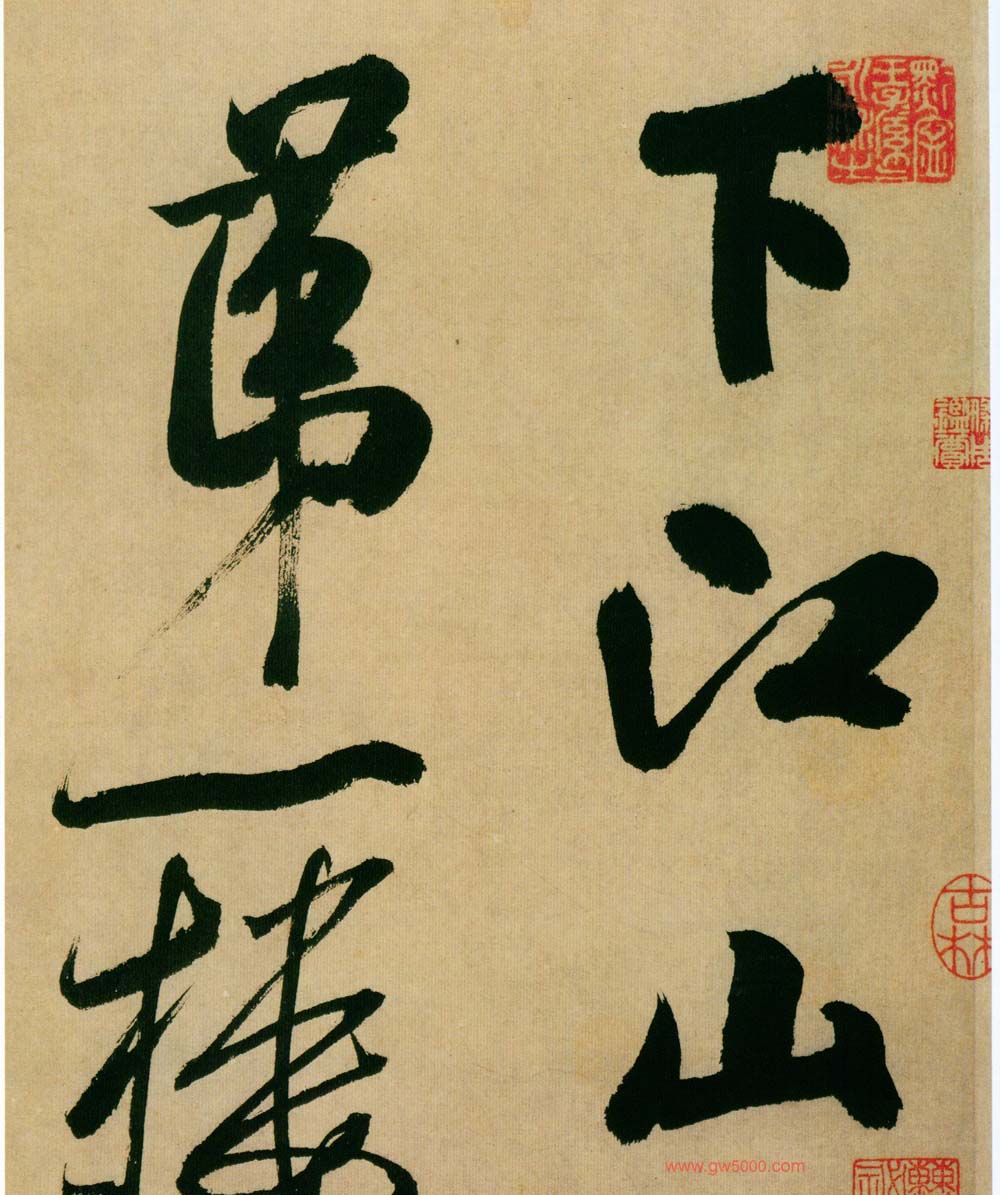 下江山
第一樓
古林
www.gw5000.com